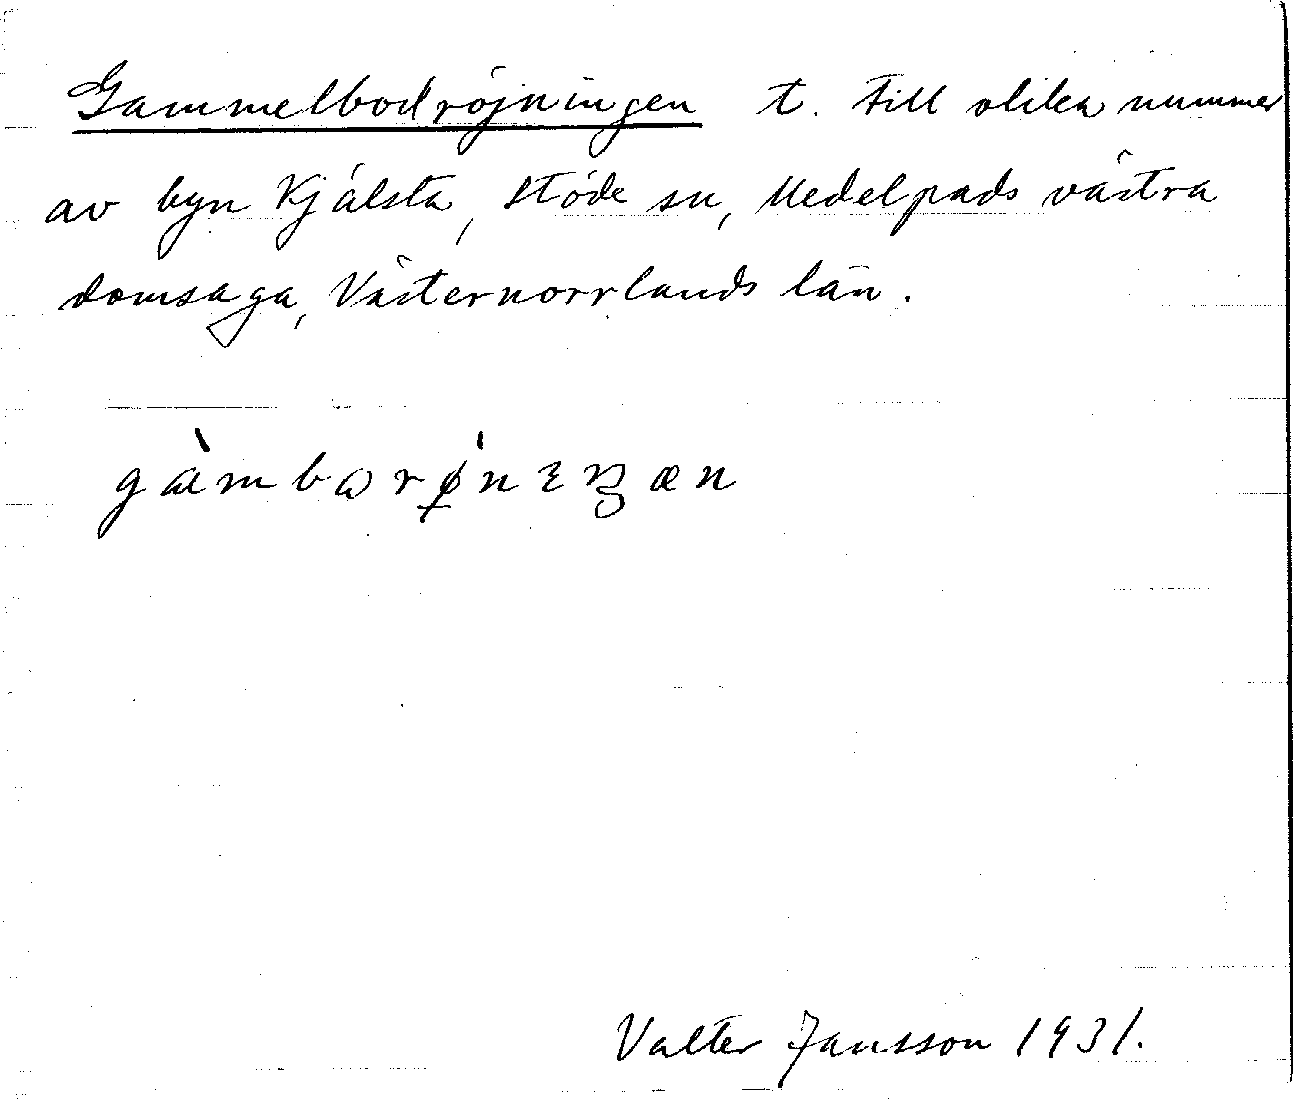 Gammelbodröjningen t. till olika nummer
av byn Kjälsta, Stöde sn, Medelpads västra
domsaga, Västernorrlands län.
Valter Jansson 1931.